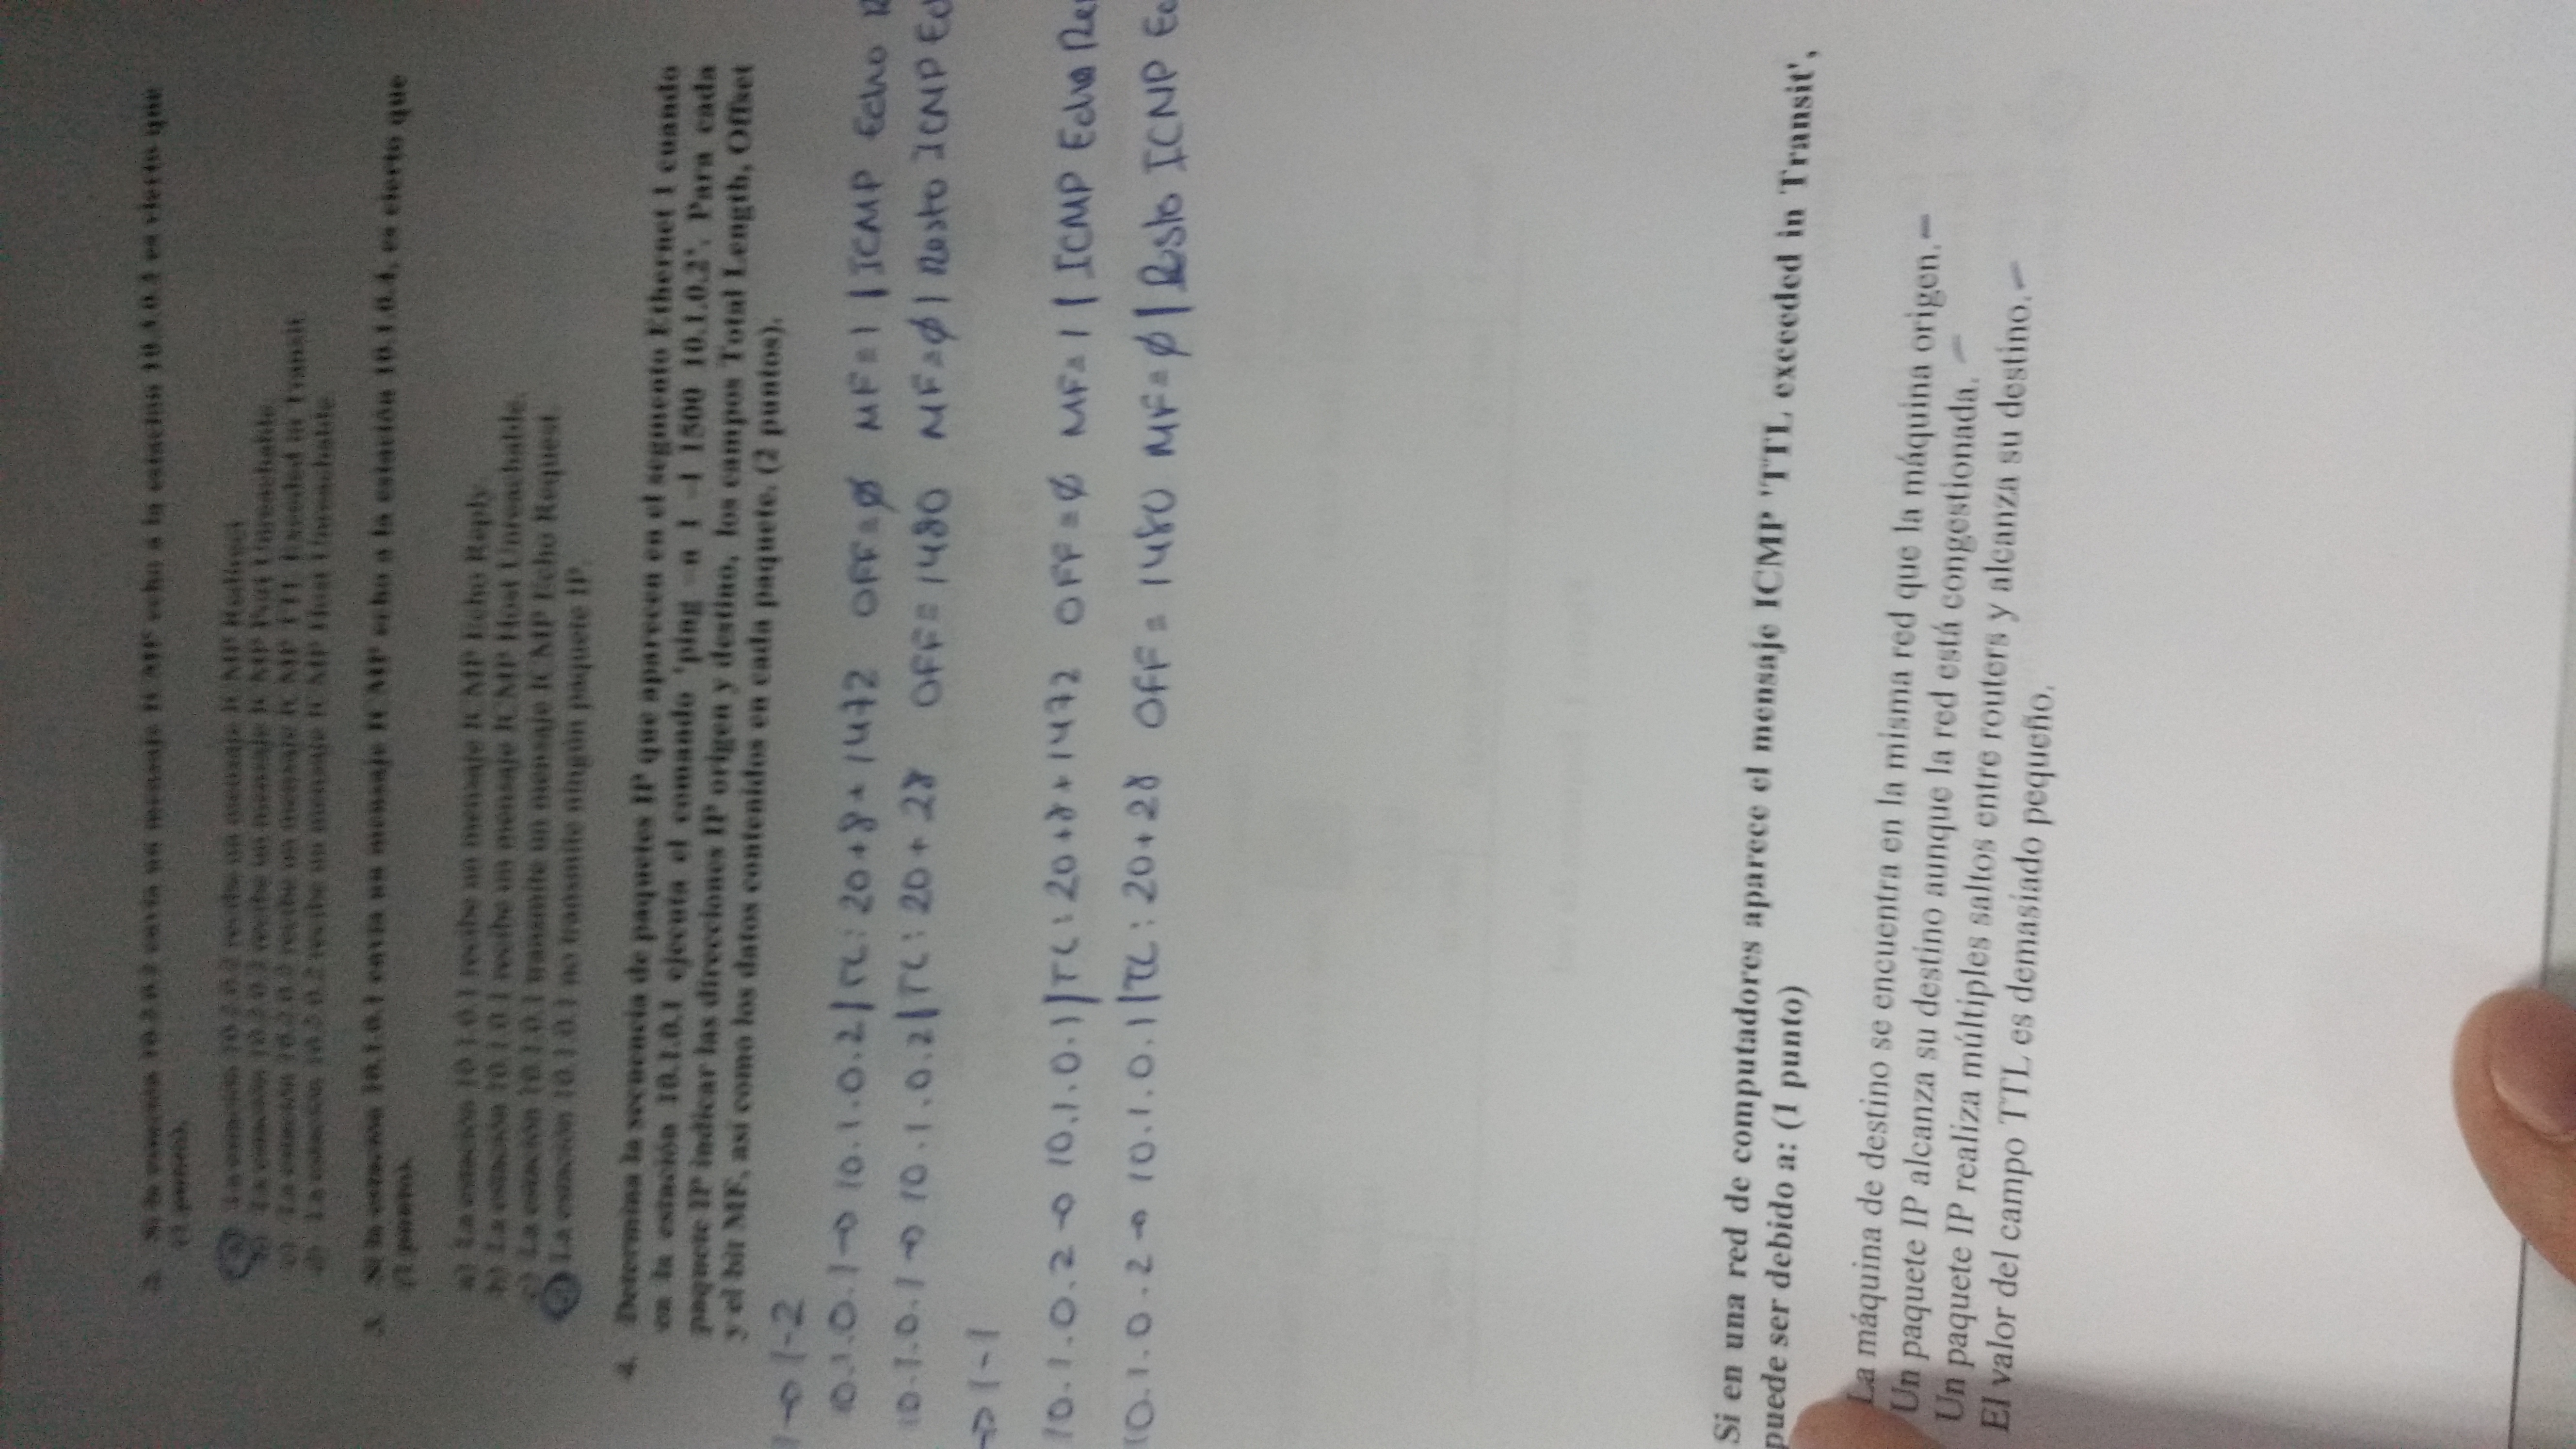 2. Si la estación 10.2.0.2 envía un mensaje ICMP echo a la estación es cierto que
(1 punto).
a) La estación 10.2.0.2 recibe un mensaje ICMP Redirect
b) La estación 10.2.0.2 recibe un mensaje ICMP Port Unreachable.
c) La estación 10.2.0.2 recibe un mensaje ICMP TTL Exceeded in Transit.
d) La estación 10.2.0.2 recibe un mensaje ICMP Host Unreachable.
3. Si la estación 10.1.0.1 envía un mensaje ICMP echo a la estación 10.1.0.4, es cierto que
(1 punto).
a) La estación 10.1.0.1 recibe un mensaje ICMP Echo Reply.
b) La estación 10.1.0.1 recibe un mensaje ICMP Host Unreachable.
c) La estación 10.1.0.1 transmite un mensaje ICMP Echo Request.
La estación 10.1.0.1 no transmite ningún paquete IP.
4. Determina la secuencia de paquetes IP que aparecen en el segmento Ethernet 1 cuando
en la estación 10.1.0.1 ejecuta el comando 'ping -n 1 -l 1500 10.1.0.2'. Para cada
paquete IP indicar las direcciones IP origen y destino, los campos Total Length, Offset
y el bit MF, así como los datos contenidos en cada paquete. (2 puntos).
1→1-2
10.1.0.1→10.1.0.2|TL: 20+8+1472 OFF=ø MF=1 | ICMP Echo
10.1.0.1→10.1.0.2|TL: 20+28 OFF=1480 MF=ø | Resto ICMP
→1-1
10.1.0.2→10.1.0.1|TL: 20+8+1472 OFF=ø MF=1 | ICMP Echo
10.1.0.2→10.1.0.1|TL: 20+28 OFF=1480 MF=ø | Resto ICMP
Si en una red de computadores aparece el mensaje ICMP 'TTL exceeded in Transit',
puede ser debido a: (1 punto)
La máquina de destino se encuentra en la misma red que la máquina origen.
Un paquete IP alcanza su destino aunque la red está congestionada.
Un paquete IP realiza múltiples saltos entre routers y alcanza su destino.
El valor del campo TTL es demasiado pequeño.